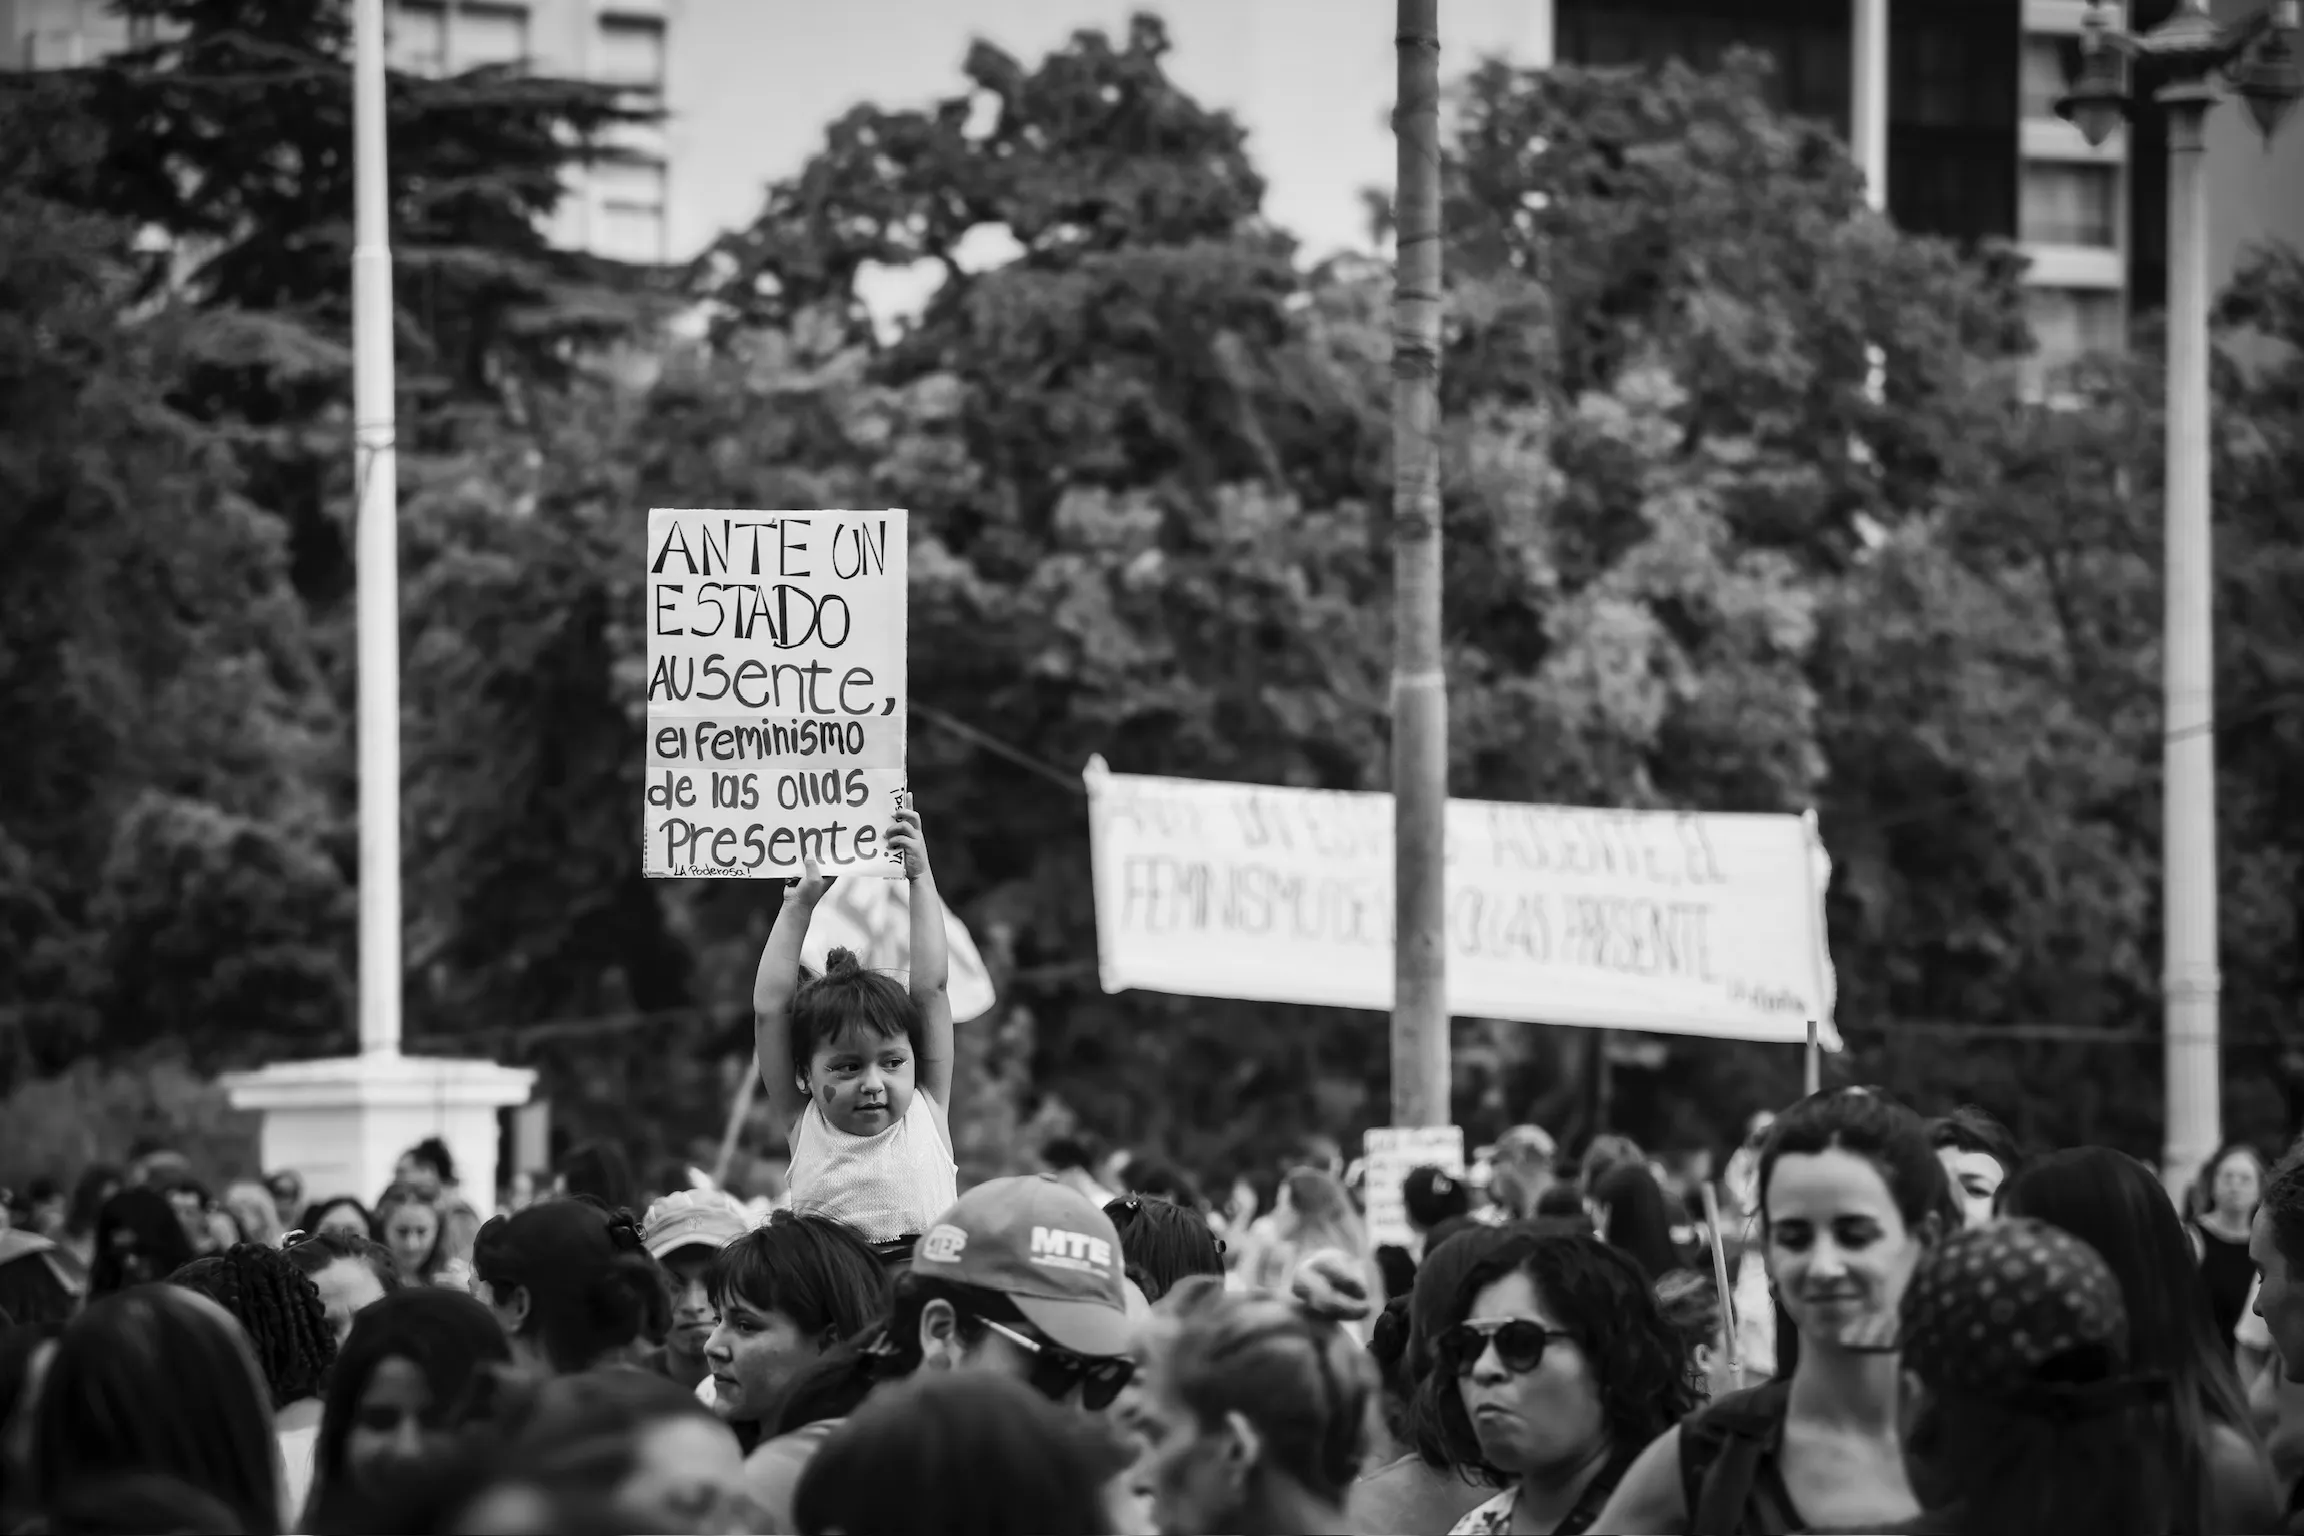 ANTE UN
ESTADO
AUSENTE,
el Feminismo
de las ollas
Presente.
LA Poderosa!
AUSENTE, EL
FEMINISMO DE
OLLAS PRESENTE
MTE